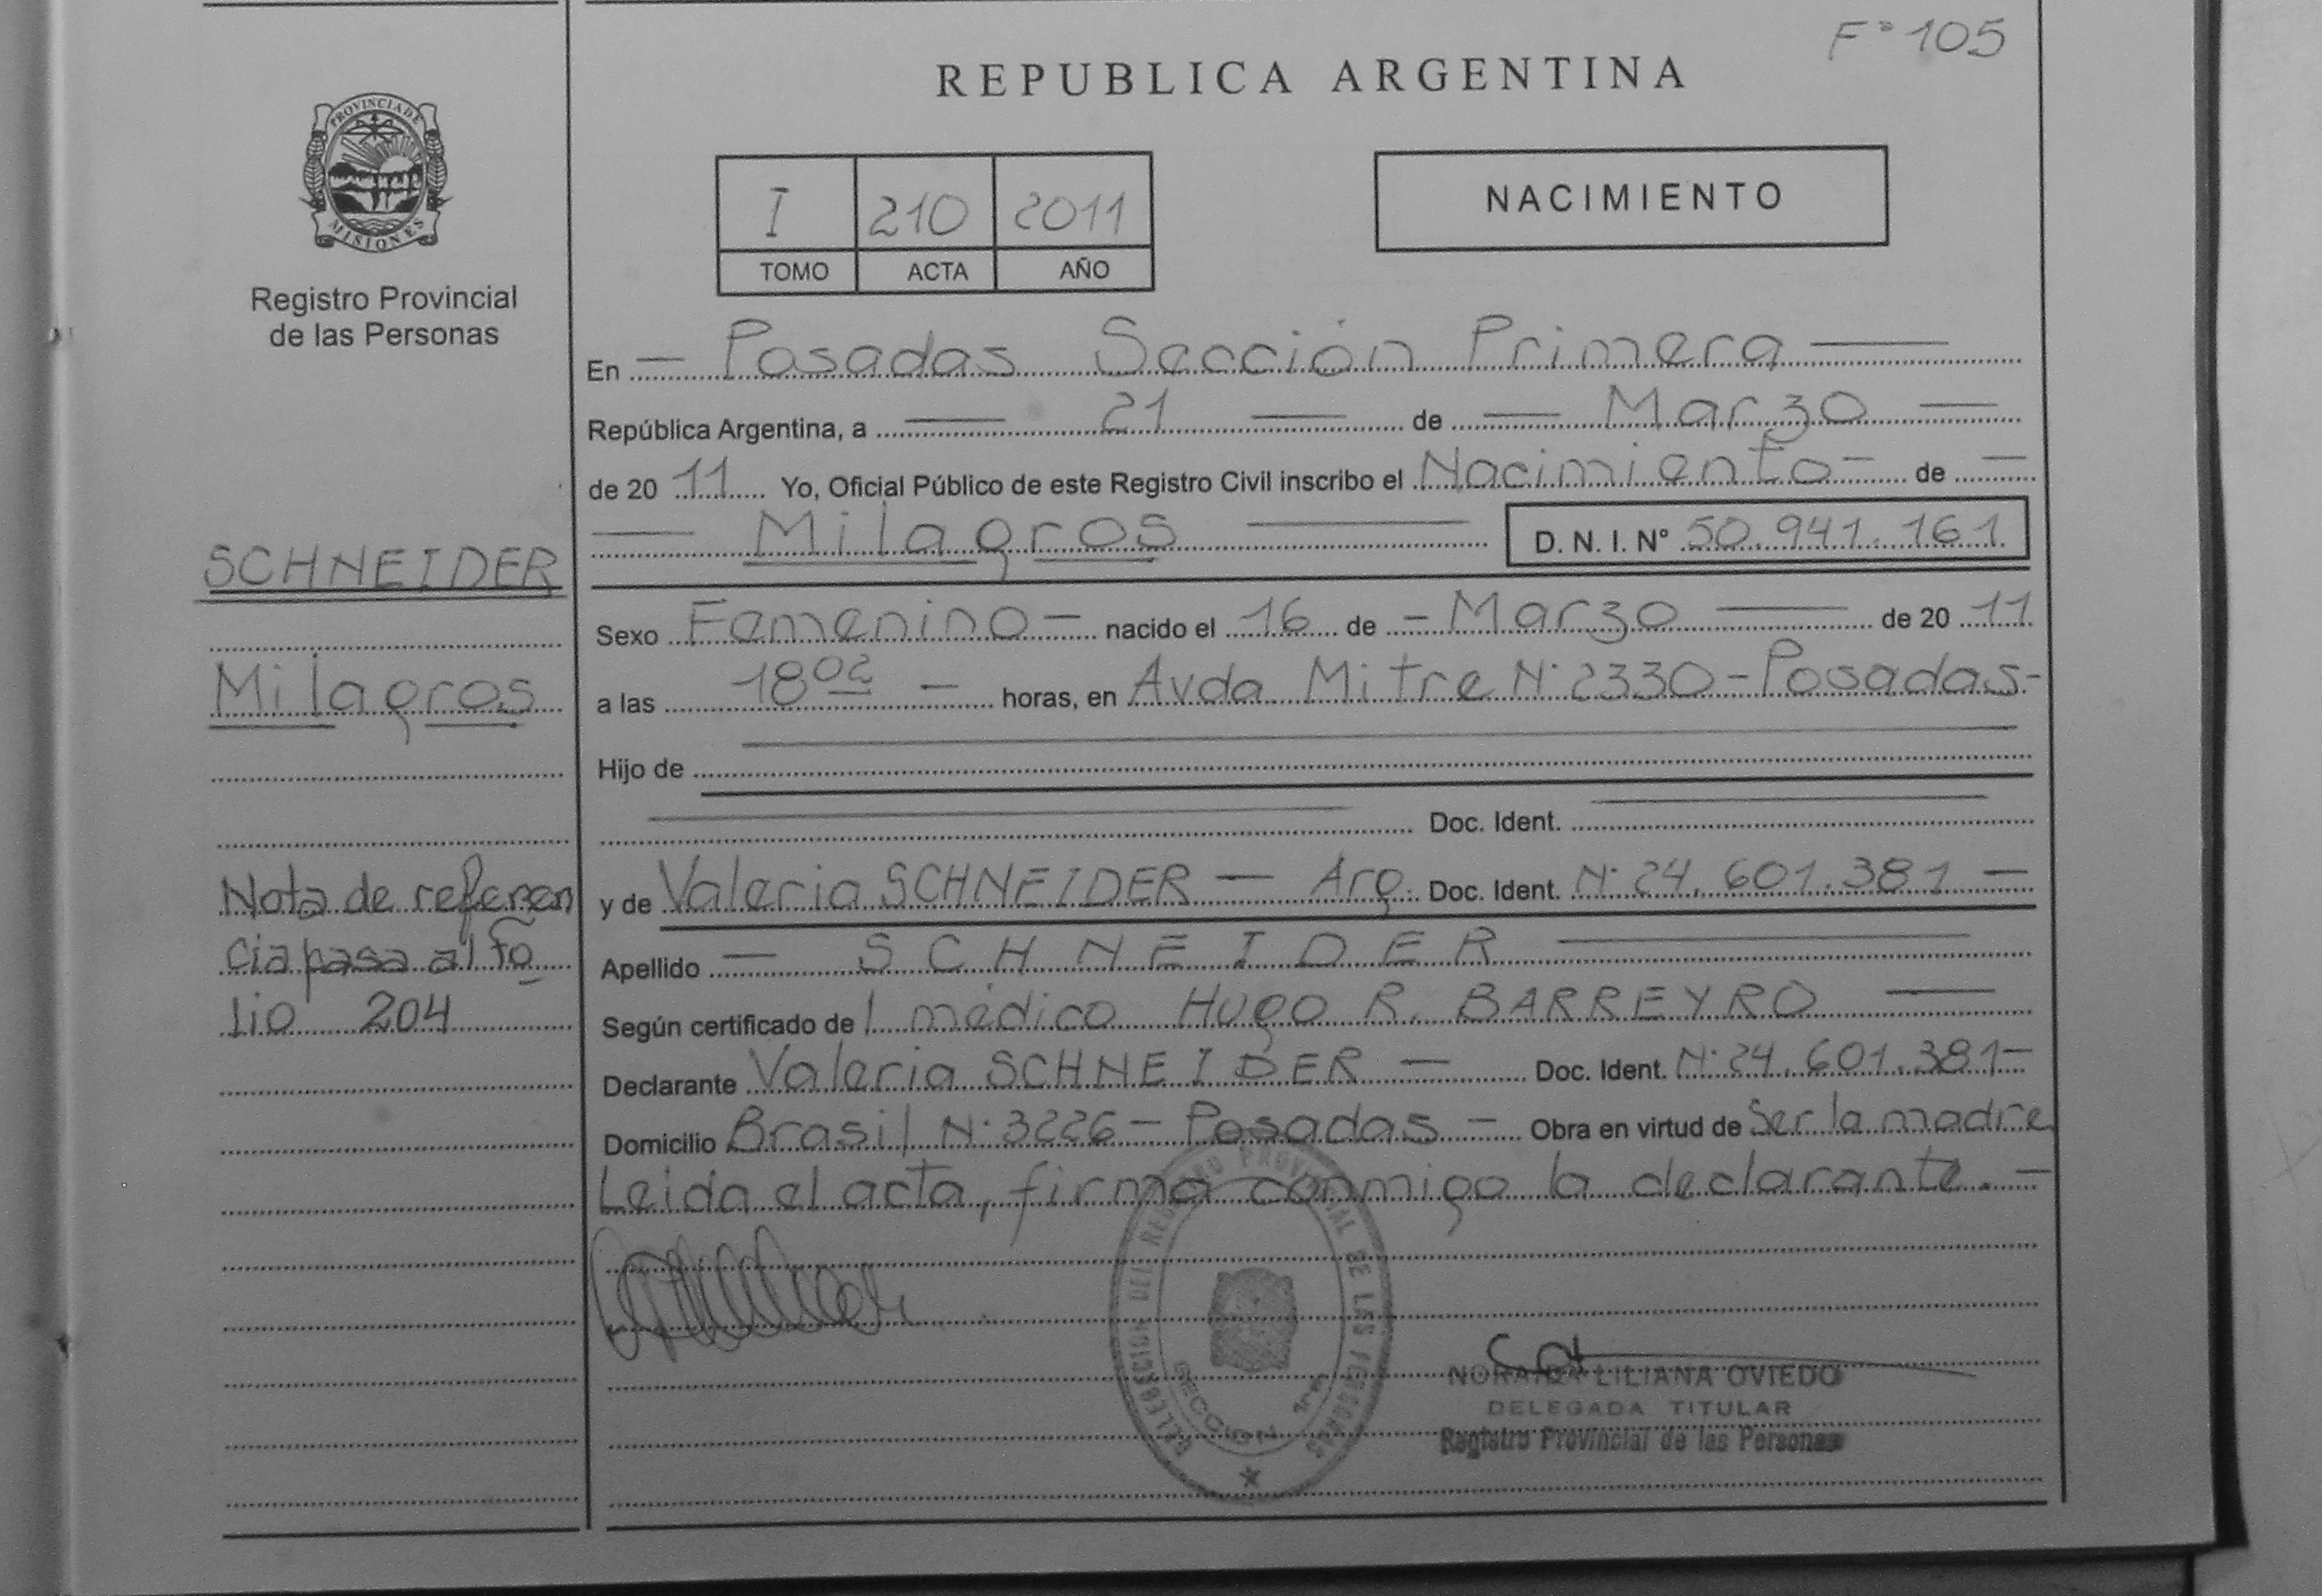 F° 105
REPUBLICA ARGENTINA
PROVINCIA DE
MISIONES
Registro Provincial
de las Personas
I 210 2011
TOMO ACTA AÑO
NACIMIENTO
En — Posadas Sección Primera —
República Argentina, a — 21 — de — Marzo —
de 20 11 Yo, Oficial Público de este Registro Civil inscribo el Nacimiento — de —
— Milagros — D. N. I. N° 50.941.161
SCHNEIDER
Milagros
Sexo Femenino — nacido el 16 de — Marzo — de 20 11
a las 18 02 — horas, en Avda Mitre N° 2330 - Posadas -
Hijo de
Doc. Ident.
y de Valeria SCHNEIDER — Arg. Doc. Ident. N° 24.601.381 —
Apellido — SCHNEIDER —
Según certificado de l médico Hugo R. BARREYRO —
Declarante Valeria SCHNEIDER — Doc. Ident. N° 24.601.381 —
Domicilio Brasil N° 3226 - Posadas — Obra en virtud de Ser la madre
Leida el acta, firma conmigo la declarante. —
Nota de referen
cia pasa al fo
lio 204
DELEGACION DEL REGISTRO PROVINCIAL DE LAS PERSONAS
SECCION 1ra
NORAIDA LILIANA OVIEDO
DELEGADA TITULAR
Registro Provincial de las Personas